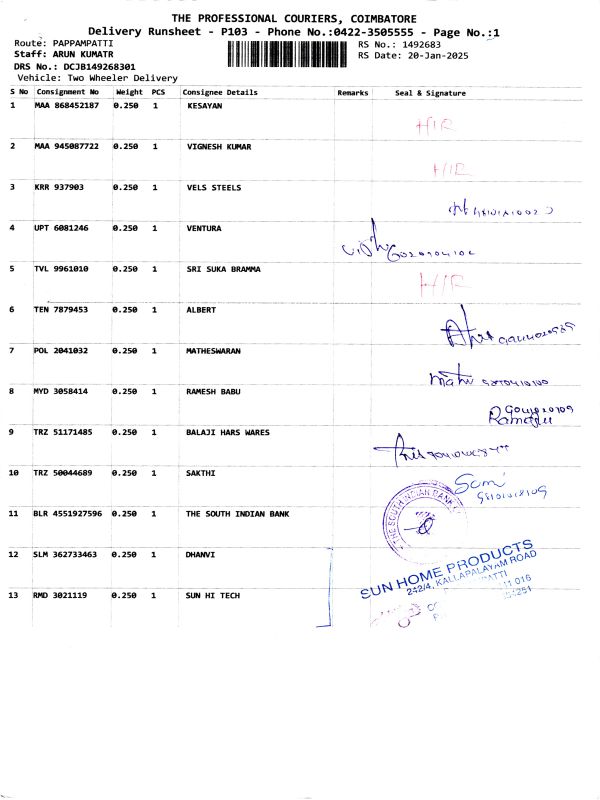 THE PROFESSIONAL COURIERS, COIMBATORE
Delivery Runsheet - P103 - Phone No.:0422-3505555 - Page No.:1
Route: PAPPAMPATTI
RS No.: 1492683
Staff: ARUN KUMATR
RS Date: 20-Jan-2025
DRS No.: DCJB149268301
Vehicle: Two Wheeler Delivery
S No Consignment No Weight PCS Consignee Details Remarks Seal & Signature
1 MAA 868452187 0.250 1 KESAYAN
H/R
2 MAA 945087722 0.250 1 VIGNESH KUMAR
H/R
3 KRR 937903 0.250 1 VELS STEELS
4 UPT 6081246 0.250 1 VENTURA
5 TVL 9961010 0.250 1 SRI SUKA BRAMMA
H/R
6 TEN 7879453 0.250 1 ALBERT
7 POL 2041032 0.250 1 MATHESWARAN
8 MYD 3058414 0.250 1 RAMESH BABU
9 TRZ 51171485 0.250 1 BALAJI HARS WARES
10 TRZ 50044689 0.250 1 SAKTHI
11 BLR 4551927596 0.250 1 THE SOUTH INDIAN BANK
THE SOUTH INDIAN BANK
12 SLM 362733463 0.250 1 DHANVI
SUN HOME PRODUCTS
242/4, KALLAPALAYAM ROAD
13 RMD 3021119 0.250 1 SUN HI TECH